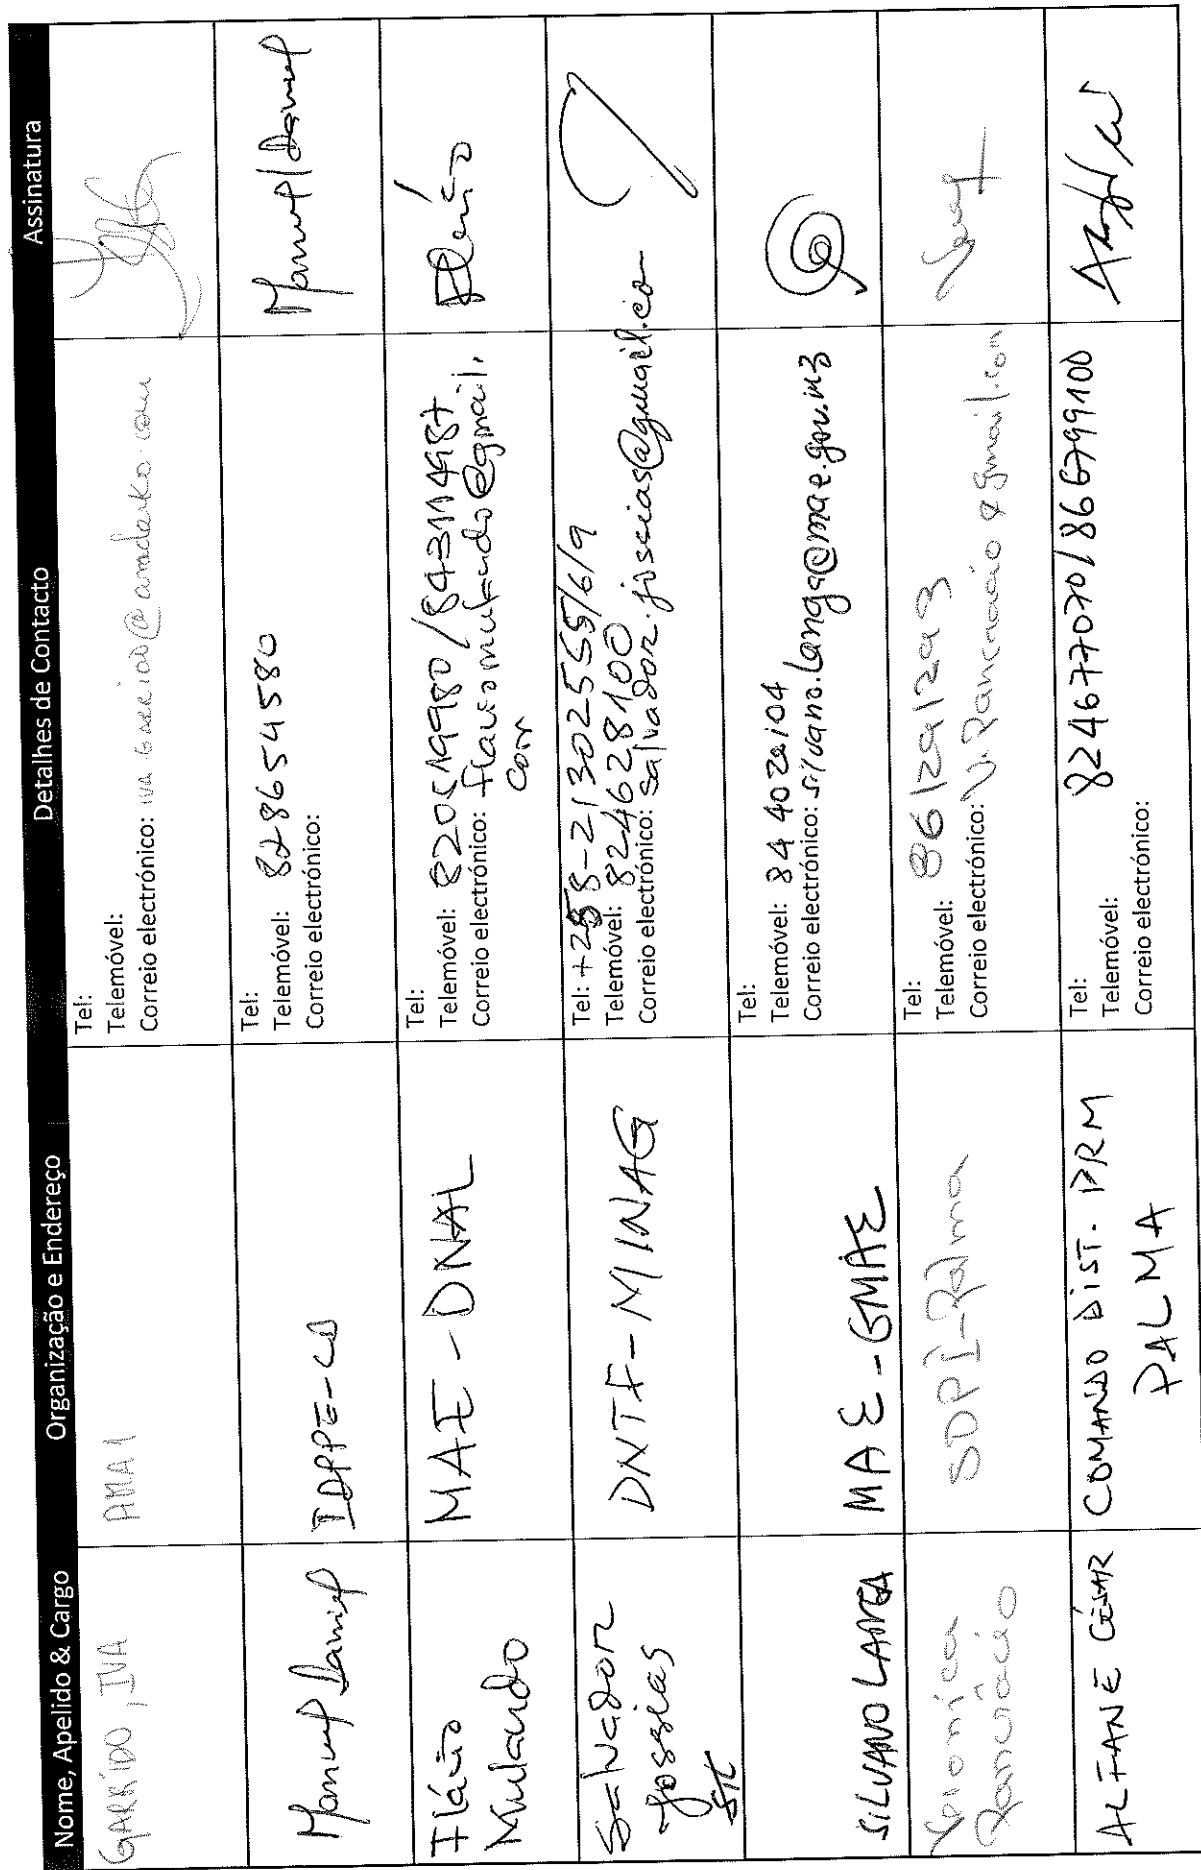 Nome, Apelido & Cargo Organização e Endereço Detalhes de Contacto Assinatura
GARRIDO, IVA
AMA1
Tel:
Telemóvel:
Correio electrónico: iva.garrido@anadarko.com
Manuel Daniel
IDPPE-CD
Tel:
Telemóvel: 828654580
Correio electrónico:
Manuel Daniel
Flávio
Mulando
MAE-DNAL
Tel:
Telemóvel: 820519980/843114987
Correio electrónico: flaviomulando@gmail.
com
Flávio
Salvador
Jossias
DNTF-MINAG
Tel: +258-21302555/6/9
Telemóvel: 824628100
Correio electrónico: salvador.jossias@gmail.co
SILVANO LANGA
MAE-GMAE
Tel:
Telemóvel:
Correio electrónico: silvano.langa@mae.gov.mz
Verónica
Pancrácio
SDPI-Palma
Tel:
Telemóvel: 861291293
Correio electrónico: v.pancracio@gmail.com
ALFANE CÉSAR
COMANDO DIST. PRM
PALMA
Tel:
Telemóvel: 824677070/866799100
Correio electrónico: